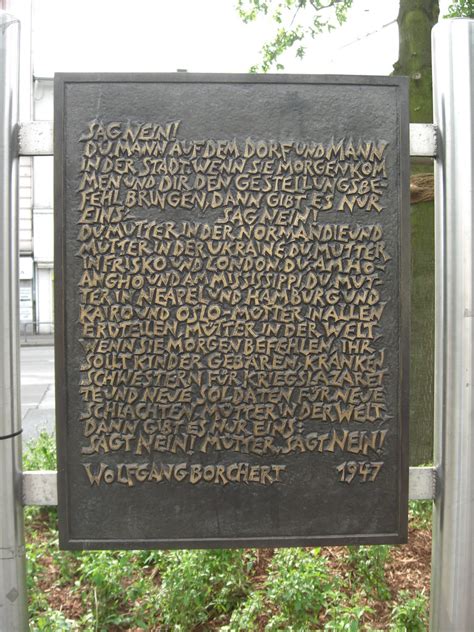 SAG NEIN!
DU MANN AUF DEM DORF UND MANN
IN DER STADT. WENN SIE MORGEN KOM
MEN UND DIR DEN GESTELLUNGSBE-
FEHL BRINGEN, DANN GIBT ES NUR
EINS: SAG NEIN!
DU MUTTER IN DER NORMANDIE UND
MUTTER IN DER UKRAINE, DU MUTTER
IN FRISKO UND LONDON, DU AM HO-
ANGHO UND AM MISSISSIPPI, DU MUT-
TER IN NEAPEL UND HAMBURG UND
KAIRO UND OSLO - MÜTTER IN ALLEN
ERDTEILEN, MÜTTER IN DER WELT,
WENN SIE MORGEN BEFEHLEN, IHR
SOLLT KINDER GEBÄREN, KRANKEN
SCHWESTERN FÜR KRIEGSLAZARET
TE UND NEUE SOLDATEN FÜR NEUE
SCHLACHTEN, MÜTTER IN DER WELT,
DANN GIBT ES NUR EINS:
SAGT NEIN! MÜTTER, SAGT NEIN!
WOLFGANG BORCHERT 1947